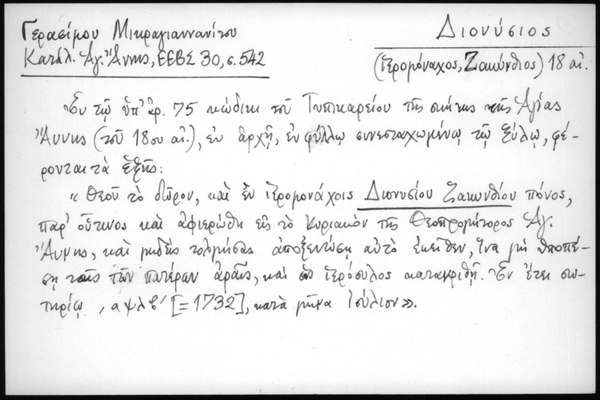 Γερασίμου Μικραγιαννανίτου
Κατάλ. Ἁγ. Ἄννης, ΕΕΒΣ 30, σ. 542
Διονύσιος
(ἱερομόναχος, Ζακύνθιος) 18 αἰ.
Ἐν τῷ ὑπ' ἀρ. 75 κώδικι τοῦ Τυπικαρείου τῆς σκήτης τῆς Ἁγίας
Ἄννης (τοῦ 18ου αἰ.), ἐν ἀρχῇ, ἐν φύλλῳ συνεσταχωμένῳ τῷ ξύλῳ, φέ-
ρονται τὰ ἑξῆς:
« Θεοῦ τὸ δῶρον, καὶ ἐν ἱερομονάχοις Διονυσίου Ζακυνθίου πόνος,
παρ' οὗτινος καὶ ἀφιερώθη εἰς τὸ Κυριακὸν τῆς Θεοπρομήτορος Ἁγ.
Ἄννης, καὶ μηδεὶς τολμήσας ἀποξενώσῃ αὐτὸ ἐκεῖθεν, ἵνα μὴ ὑποπέ-
σῃ ταῖς τῶν πατέρων ἀραῖς, καὶ ὡς ἱερόσυλος κατακριθῇ. Ἐν ἔτει σω-
τηρίῳ , αψλβ' [= 1732], κατὰ μῆνα Ἰούλιον ».